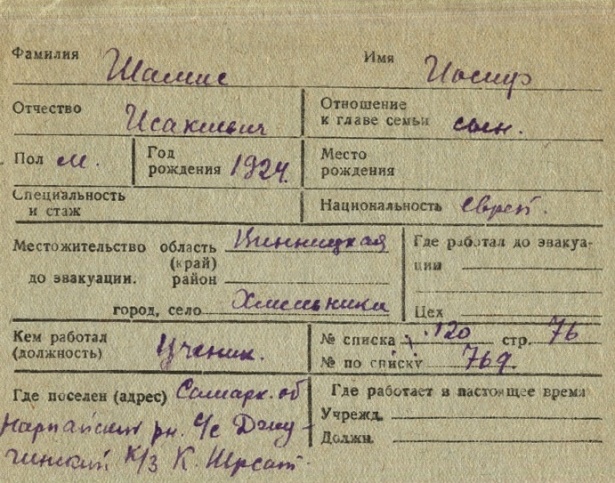 Фамилия Шамис Имя Иосиф
Отчество Исакиевич Отношение
к главе семьи сын.
Пол м. Год
рождения 1924. Место
рождения
Специальность
и стаж Национальность еврей.
Местожительство область Винницкая Где работал до эвакуа-
(край) ции
до эвакуации. район
город, село Хмельники Цех
Кем работал
(должность) Ученик. № списка 120 стр. 76
№ по списку 769.
Где поселен (адрес) Самарк. об Где работает в настоящее время
Нарпайский рн. С/с Учрежд.
к/з К. Должн.